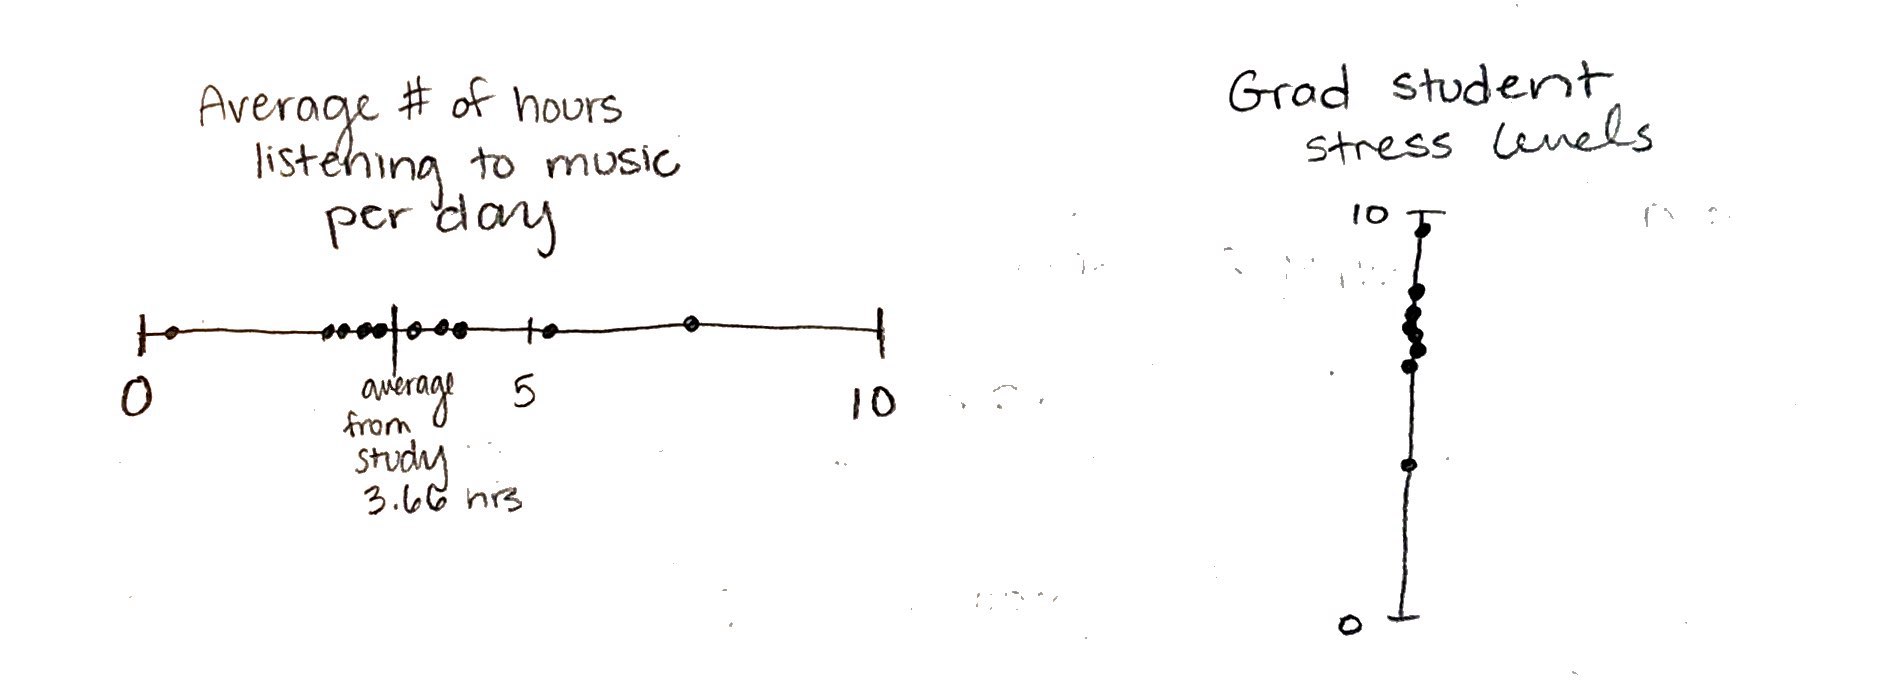 Average # of hours
listening to music
per day
0
5
10
average
from
study
3.66 hrs
Grad student
stress levels
10
0